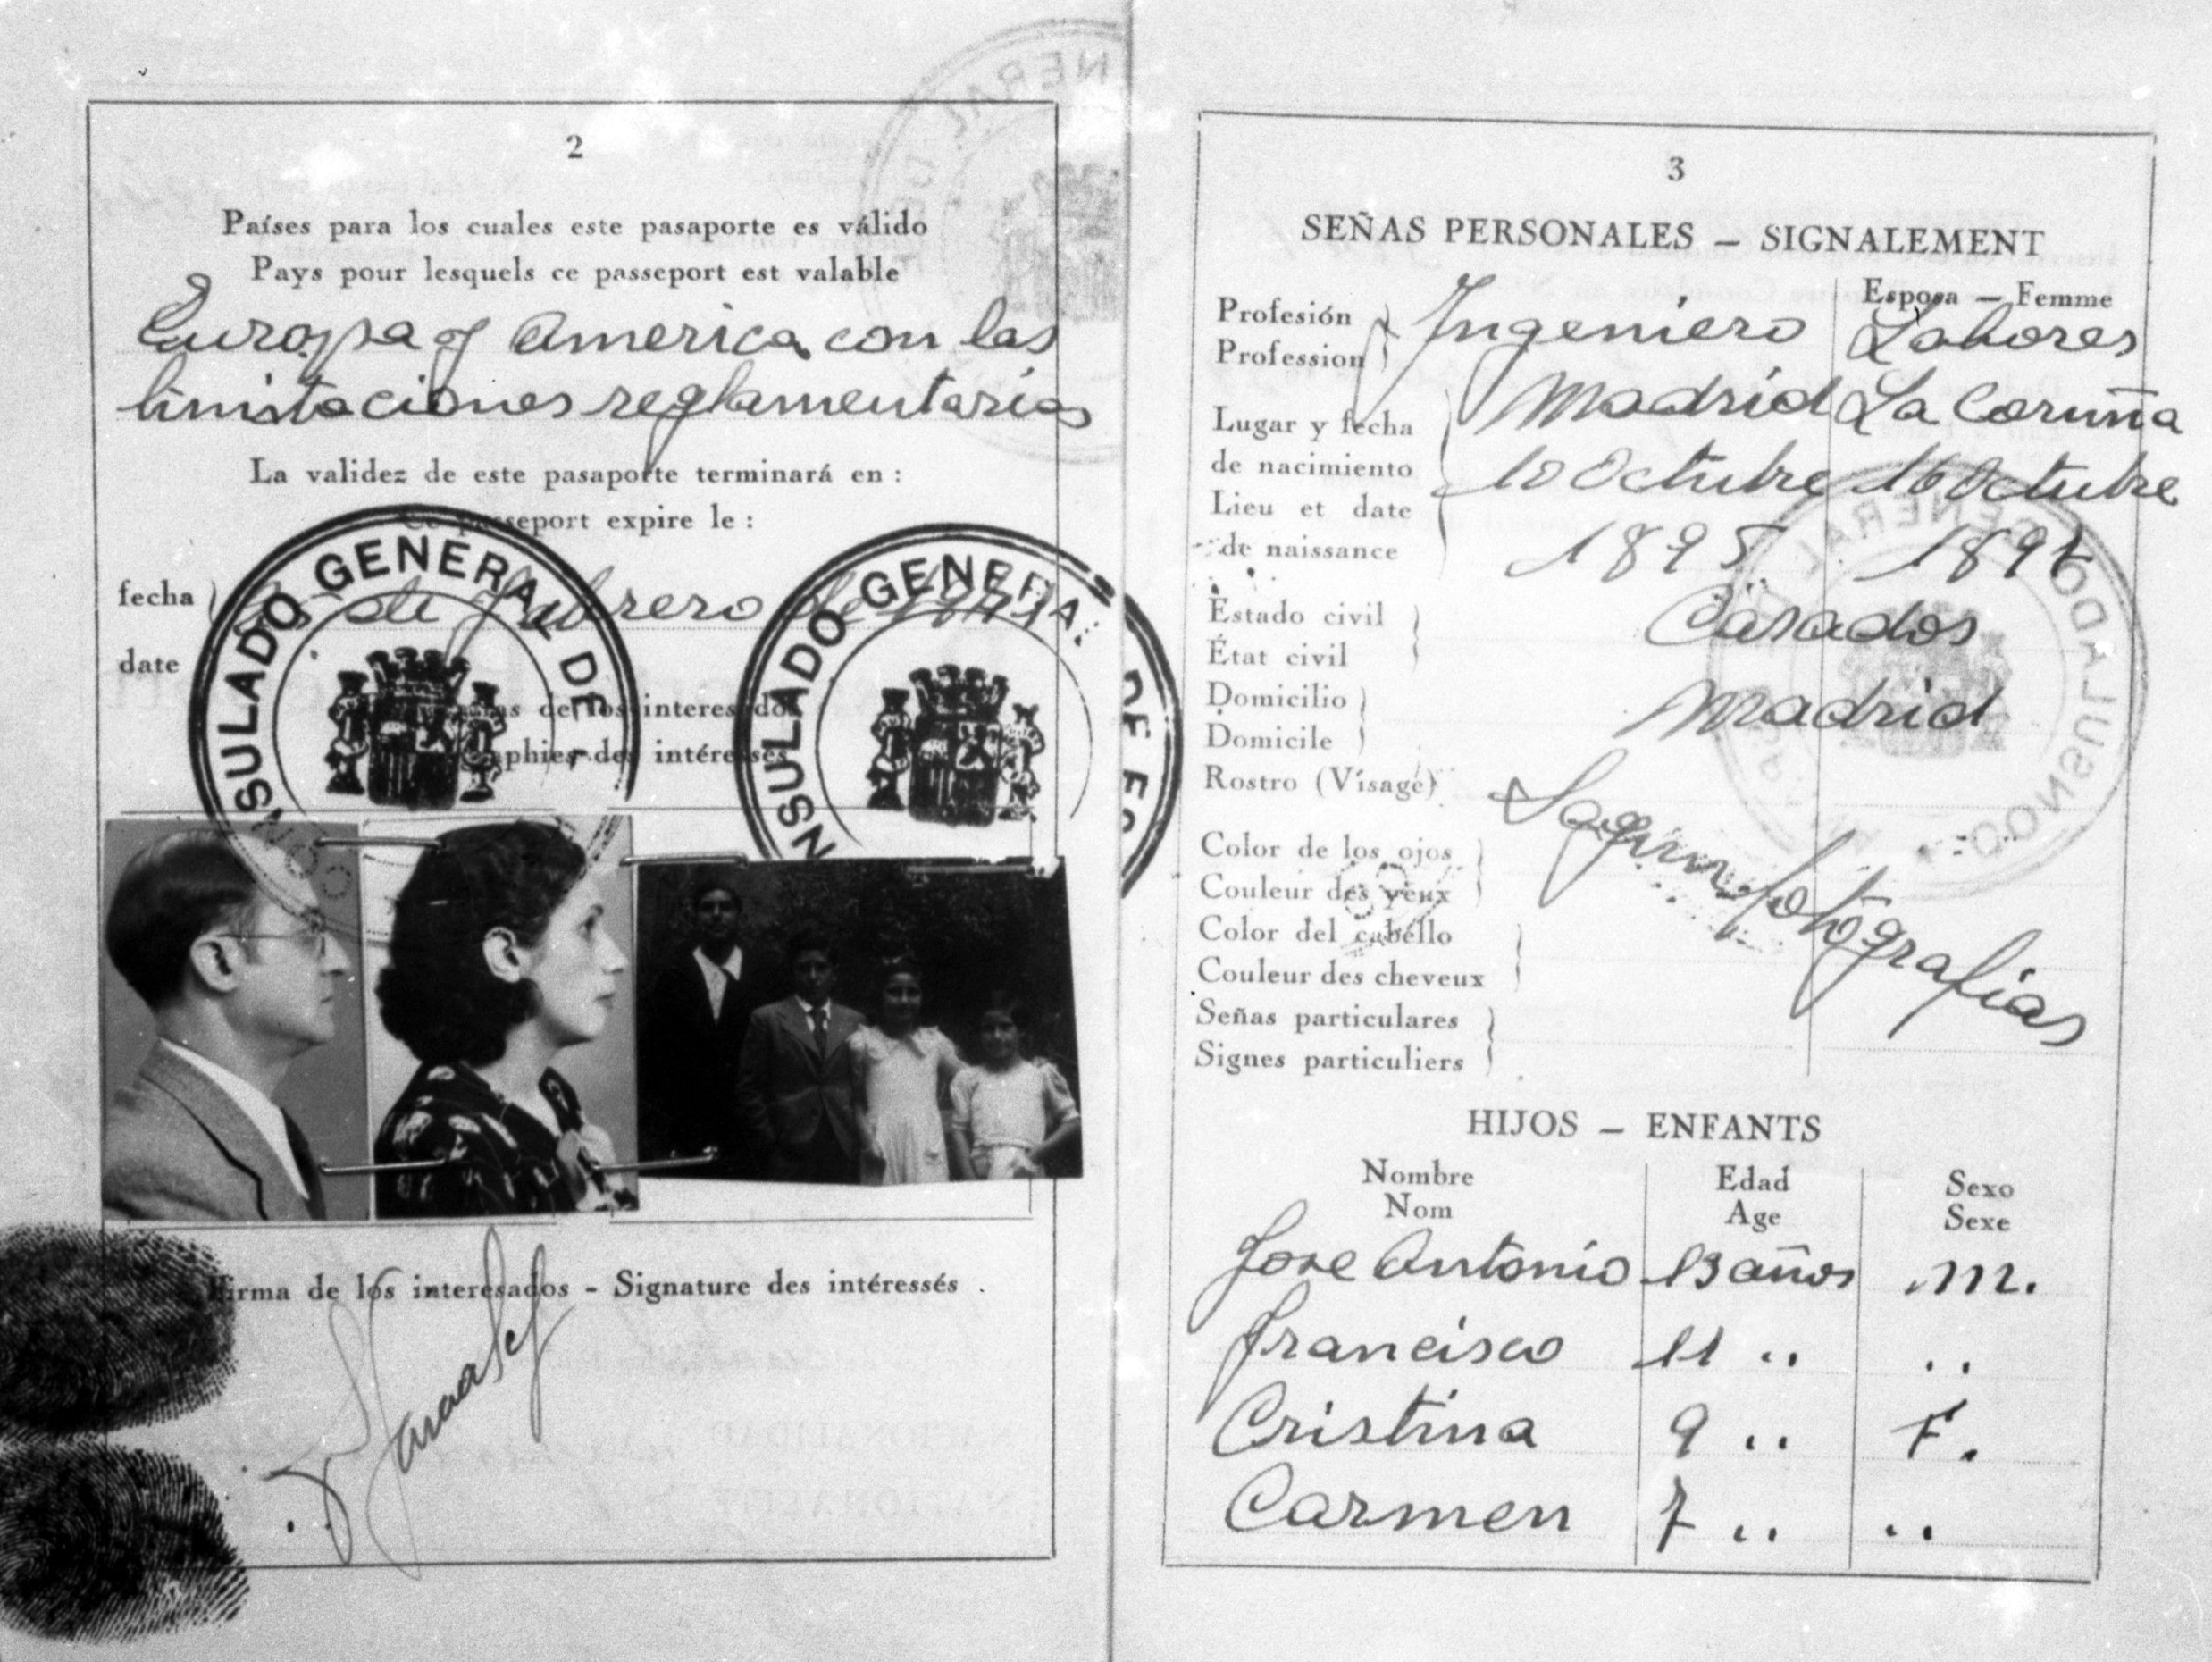 2
Países para los cuales este pasaporte es válido
Pays pour lesquels ce passeport est valable
Europa y America con las
limitaciones reglamentarias
La validez de este pasaporte terminará en :
Ce passeport expire le :
fecha
de Febrero de
date
CONSULADO GENERAL DE
CONSULADO GENERAL DE ES
de los interesados
des intéressés
Firma de los interesados - Signature des intéressés .
3
SEÑAS PERSONALES — SIGNALEMENT
Esposa — Femme
Profesión
Profession
Ingeniero Labores
Lugar y fecha
de nacimiento
Lieu et date
de naissance
Madrid La Coruña
10 Octubre 16 Octubre
1895 189
Estado civil
État civil
Casados
Domicilio
Domicile
Madrid
Rostro (Visage)
Color de los ojos
Couleur des yeux
Color del cabello
Couleur des cheveux
Señas particulares
Signes particuliers
Segun fotografias
HIJOS — ENFANTS
Nombre Edad Sexo
Nom Age Sexe
Jose Antonio 13 años M.
Francisco 11 " "
Cristina 9 " F.
Carmen 7 " "